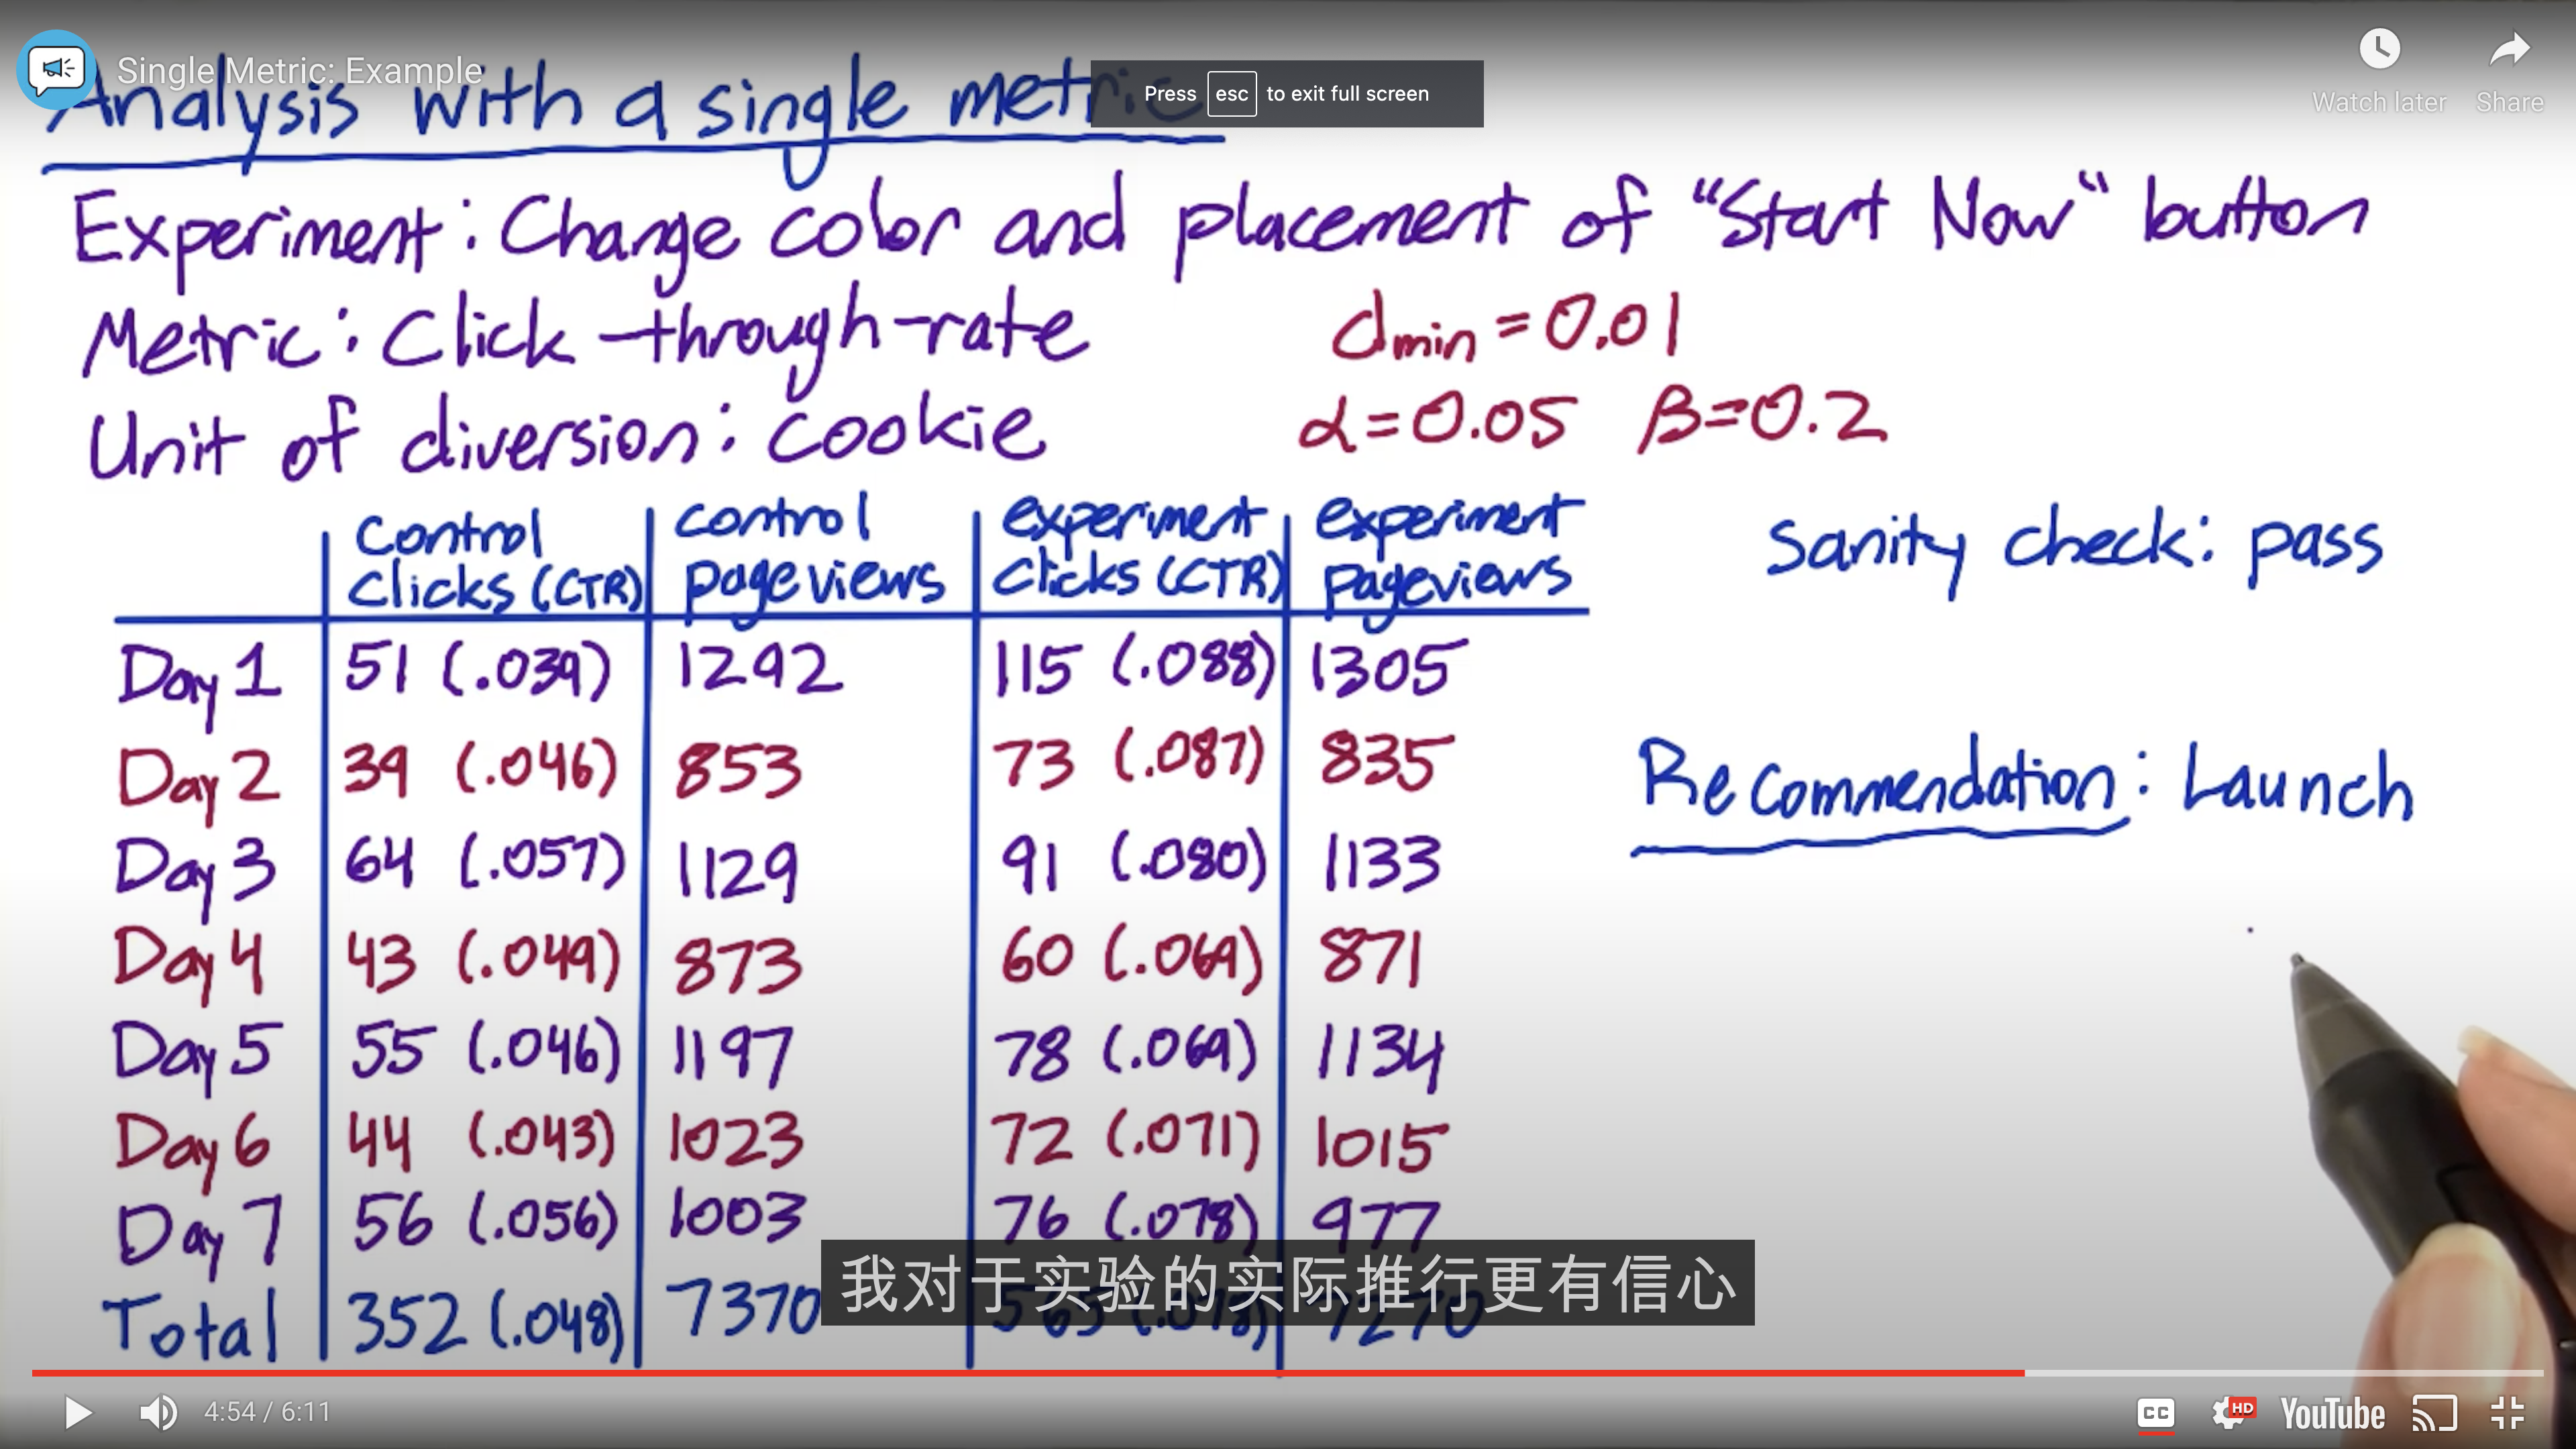 Single Metric: Example
Watch later
Share
Press esc to exit full screen
Analysis with a single metric
Experiment: Change color and placement of "Start Now" button
Metric: Click-through-rate
dmin = 0.01
Unit of diversion: cookie
α=0.05 β=0.2
Control Clicks (CTR) | control pageviews | experiment clicks (CTR) | experiment pageviews
Sanity check: pass
Day 1 51 (.039) 1292 115 (.088) 1305
Day 2 39 (.046) 853 73 (.087) 835
Recommendation: Launch
Day 3 64 (.057) 1129 91 (.080) 1133
Day 4 43 (.049) 873 60 (.069) 871
Day 5 55 (.046) 1197 78 (.069) 1134
Day 6 44 (.043) 1023 72 (.071) 1015
Day 7 56 (.056) 1003 76 (.078) 977
我对于实验的实际推行更有信心
Total 352 (.048) 7370 565 7270
4:54 / 6:11
CC
HD
YouTube